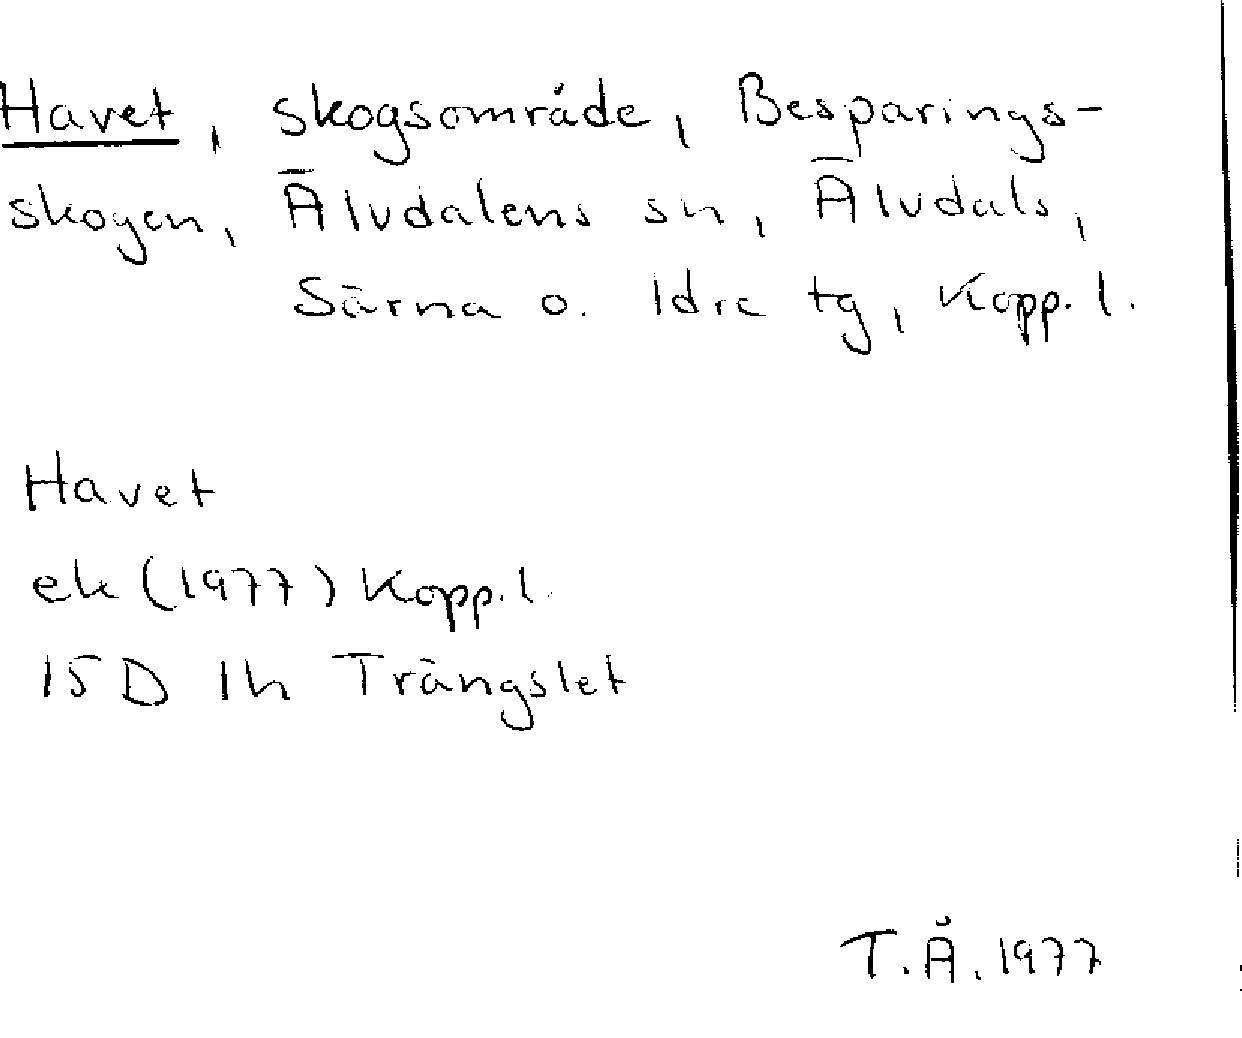 Havet, skogsområde, Besparings-
skogen, Älvdalens sn, Älvdals,
Särna o. Idre tg, Kopp. l.
Havet
ek (1977) Kopp. l.
15D 1h Trängslet
T.Å. 1977